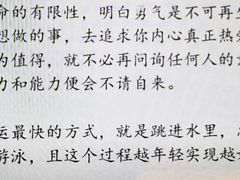 命的有限性，明白勇气是不可再
想做的事，去追求你内心真正热
为值得，就不必再问询任何人的
力和能力便会不请自来。
运最快的方式，就是跳进水里，
游泳，且这个过程越年轻实现越